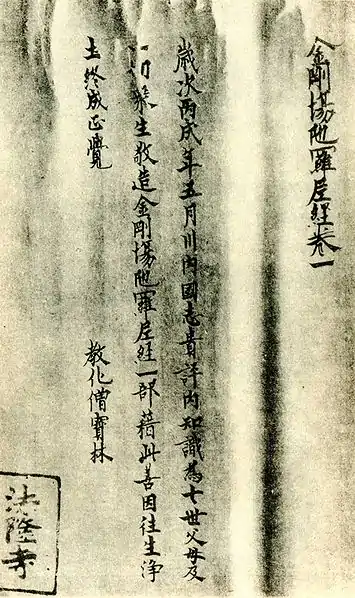 金剛場陁羅尼経巻一
歳次丙戌年五月川内國志貴評内知識為七世父母及
一切衆生敬造金剛場陁羅尼経一部藉此善因往生浄
土終成正覺
教化僧寶林
法隆寺